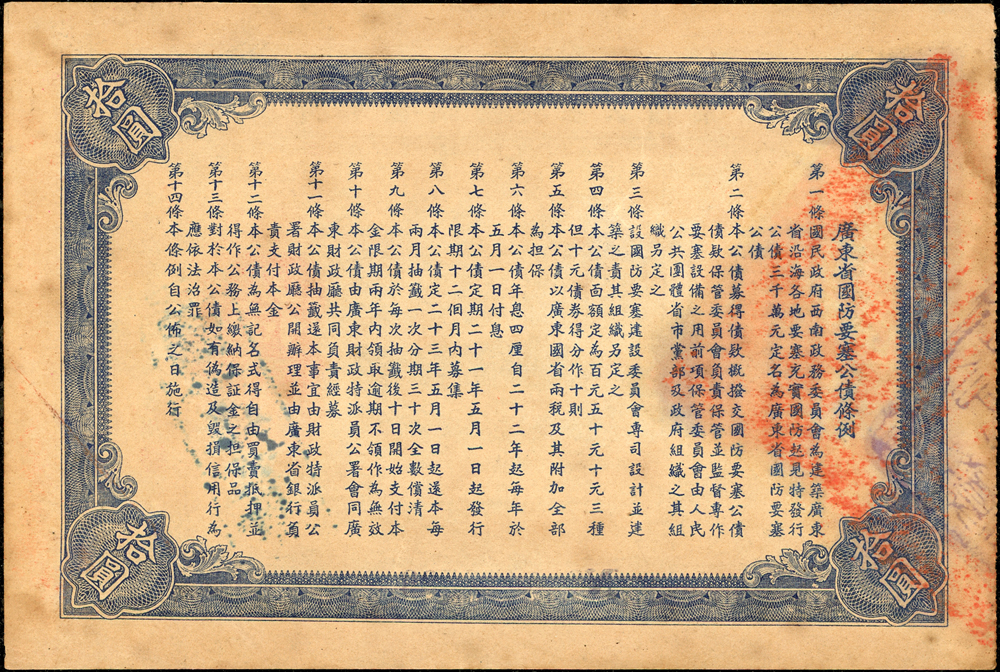 拾圓
拾圓
廣東省國防要塞公債條例
第一條國民政府西南政務委員會為建築廣東
省沿海各地要塞充實國防起見特發行
公債三千萬元定名為廣東省國防要塞
公債
第二條本公債募得債款概撥交國防要塞公債
債款保管委員會負責保管並監督專作
要塞設備之用前項保管委員會由人民
公共團體省市黨部及政府組織之其組
織另定之
第三條設國防要塞建設委員會專司設計並建
築之責其組織另定之
第四條本公債面額定為百元五十元十元三種
但十元債券得分作十則
第五條本公債以廣東國省兩稅及其附加全部
為担保
第六條本公債年息四厘自二十二年起每年於
五月一日付息
第七條本公債定期二十一年五月一日起發行
限期十二個月內募集
第八條本公債定二十三年五月一日起還本每
兩月抽籤一次分期三十次全數償清
第九條本公債於每次抽籤後十日開始支付本
金限期兩年內領取逾期不領作為無效
第十條本公債由廣東財政特派員公署會同廣
東財政廳共同負責經募
第十一條本公債抽籤還本事宜由財政特派員公
署財政廳公開辦理並由廣東省銀行負
責支付本金
第十二條本公債為無記名式得自由買賣抵押並
得作公務上繳納保証金之担保品
第十三條對於本公債如有偽造及毀損信用行為
應依法治罪
第十四條本條例自公佈之日施行
拾圓
拾圓